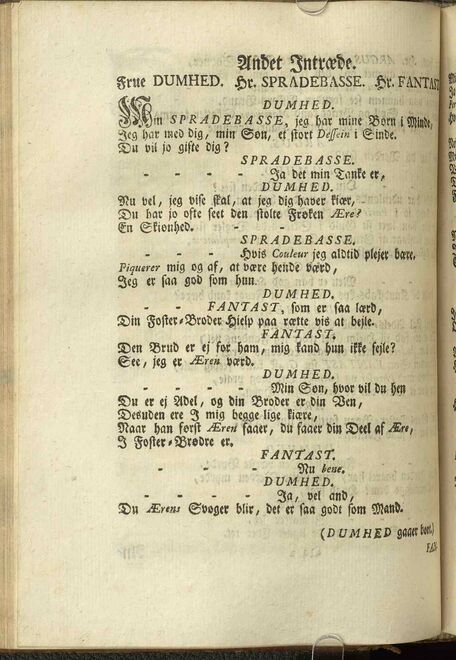 Andet Intræde.
Frue DUMHED. Hr. SPRADEBASSE. Hr. FANTAST
DUMHED.
Min SPRADEBASSE, jeg har mine Børn i Minde,
Jeg har med dig, min Søn, et stort Dessein i Sinde.
Du vil jo gifte dig?
SPRADEBASSE.
- - - - Ja det min Tanke er,
DUMHED.
Nu vel, jeg vise skal, at jeg dig haver kiær,
Du har jo ofte seet den stolte Frøken Ære?
En Skiønhed. - -
SPRADEBASSE.
- - - Hvis Couleur jeg aldtid plejer bære.
Piquerer mig og af, at være hende værd,
Jeg er saa god som hun.
DUMHED.
- - - FANTAST, som er saa lærd,
Din Foster-Broder Hielp paa rætte vis at bejle.
FANTAST.
Den Brud er ej for ham, mig kand hun ikke fejle?
See, jeg er Æren værd.
DUMHED.
- - - - Min Søn, hvor vil du hen
Du er ej Adel, og din Broder er din Ven,
Desuden ere I mig begge lige kiære,
Naar han først Æren faaer, du faaer din Deel af Ære,
I Foster-Brødre er.
FANTAST.
- - - - Nu bene.
DUMHED.
- - - - - Ja, vel and,
Du Ærens Svoger blir, det er saa godt som Mand.
(DUMHED gaaer bort.)
FAN-